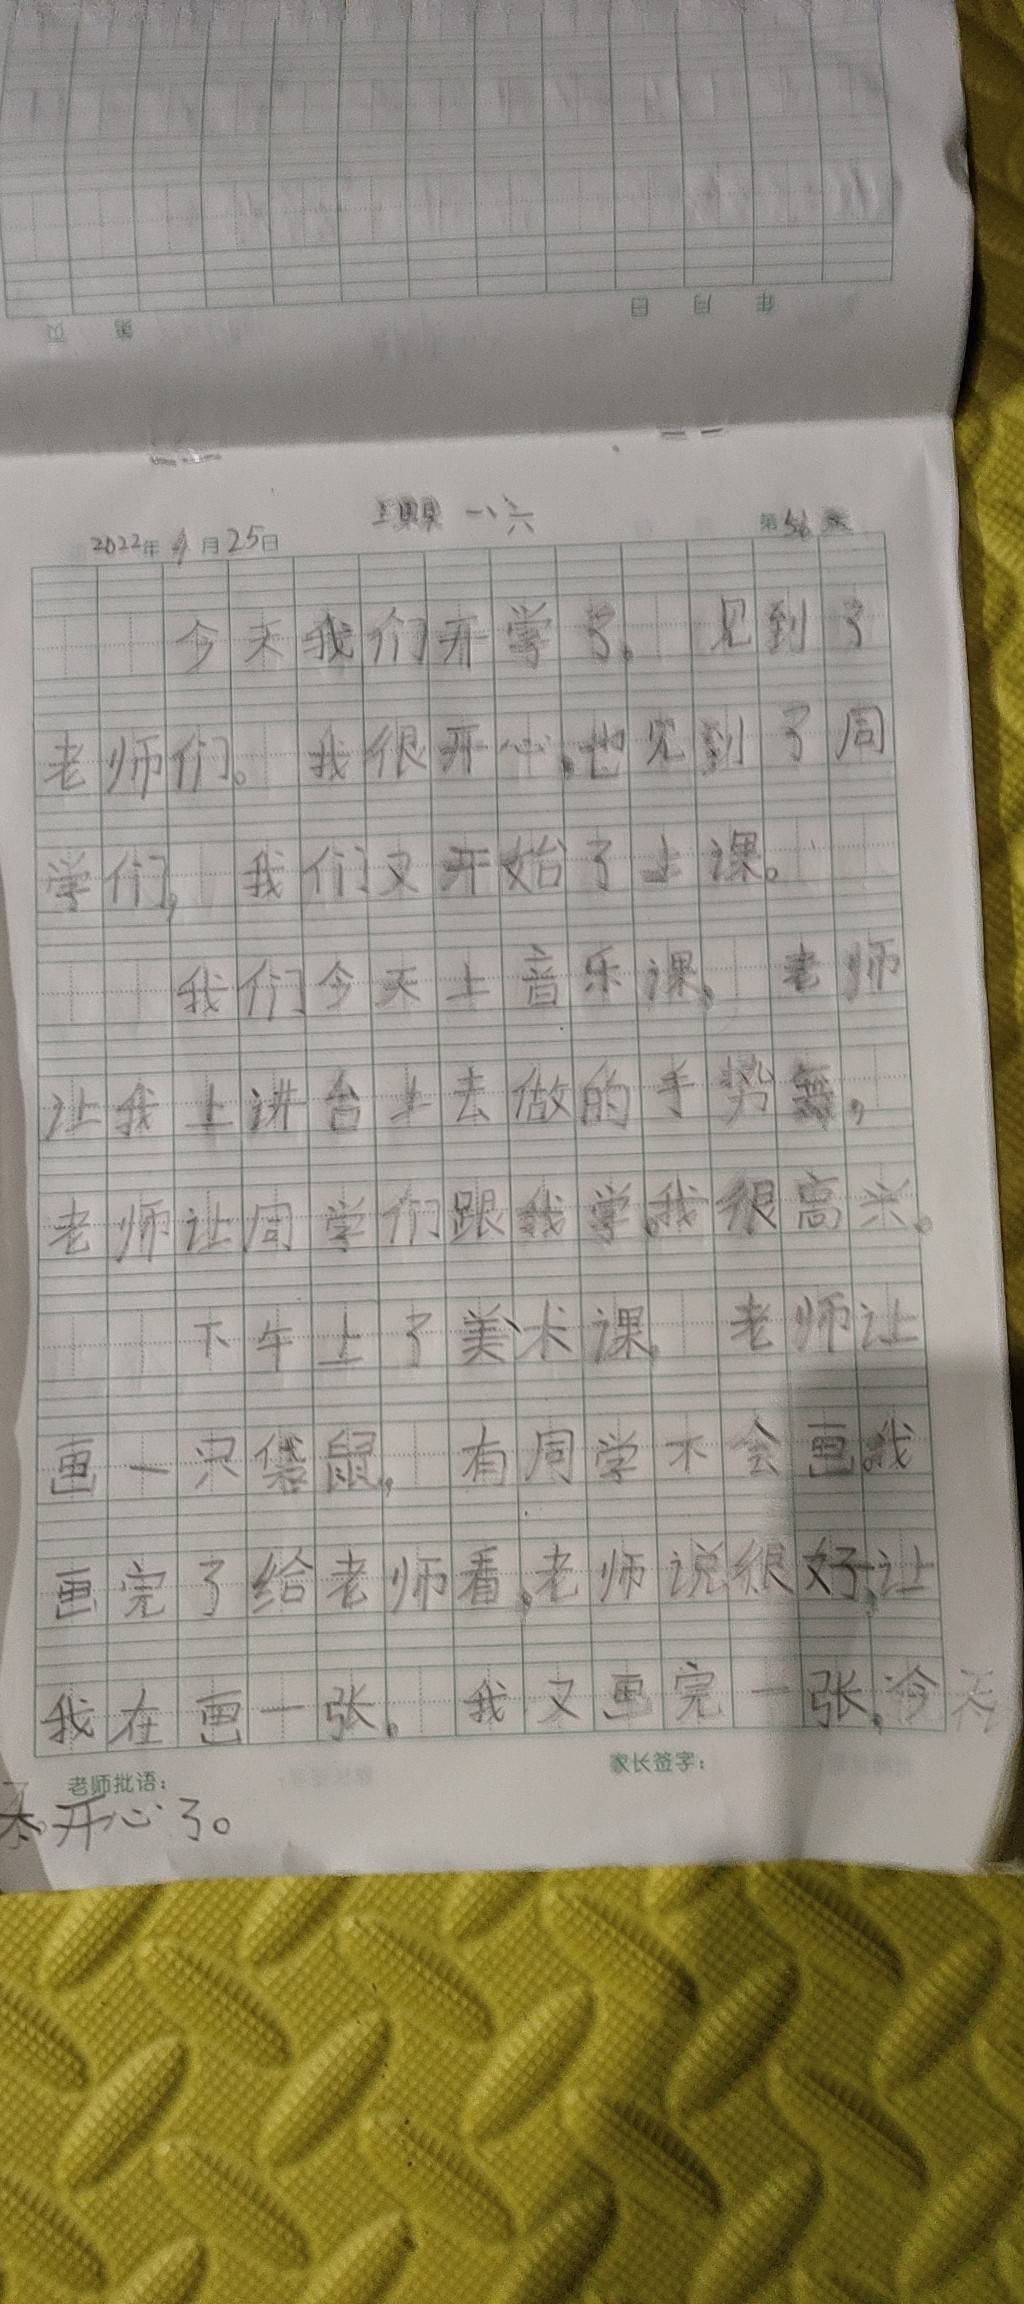 页 第 日 月 年
2022年4月25日 星期一 第56
今天我们开学了。见到了
老师们。我很开心,也见到了同
学们,我们又开始了上课。
我们今天上音乐课,老师
让我上讲台上去做的手势舞,
老师让同学们跟我学,我很高兴。
下午上了美术课,老师让
画一只袋鼠,有同学不会画。我
画完了给老师看,老师说很好,让
我在画一张。我又画完一张,今天
老师批语: 家长签字:
太开心了。